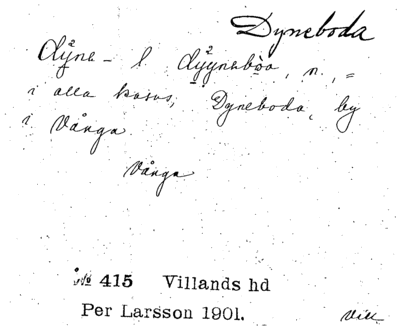 Dyneboda
dyne- l. dyyneboa, n., =
i alla kasus, Dyneboda, by
i Vånga
Vånga
No 415 Villands hd
Per Larsson 1901.
Vill